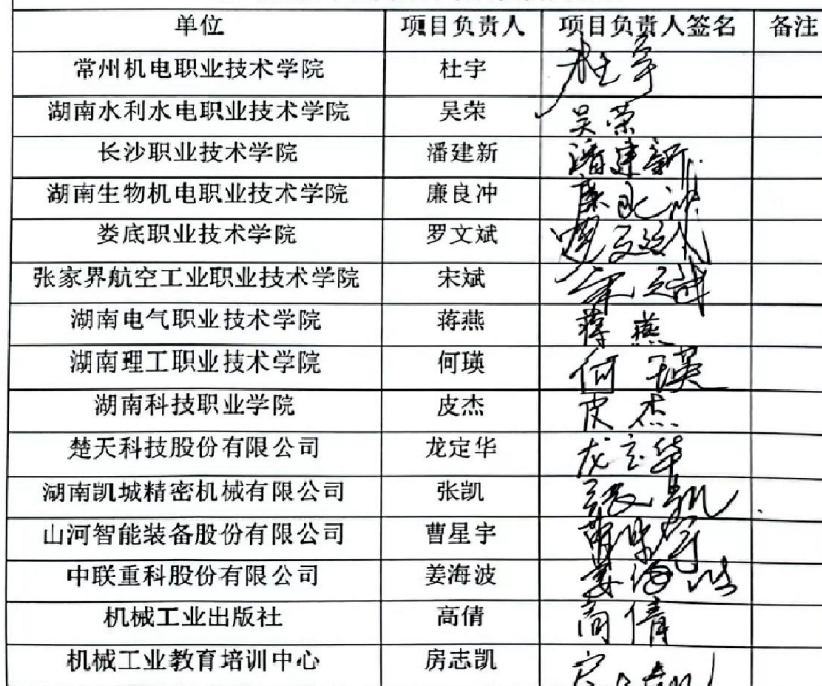 单位 项目负责人 项目负责人签名 备注
常州机电职业技术学院 杜宇 杜宇
湖南水利水电职业技术学院 吴荣 吴荣
长沙职业技术学院 潘建新 潘建新
湖南生物机电职业技术学院 廉良冲 廉良冲
娄底职业技术学院 罗文斌 罗文斌
张家界航空工业职业技术学院 宋斌 宋斌
湖南电气职业技术学院 蒋燕 蒋燕
湖南理工职业技术学院 何瑛 何瑛
湖南科技职业学院 皮杰 皮杰
楚天科技股份有限公司 龙定华 龙定华
湖南凯城精密机械有限公司 张凯 张凯
山河智能装备股份有限公司 曹星宇
中联重科股份有限公司 姜海波 姜海波
机械工业出版社 高倩 高倩
机械工业教育培训中心 房志凯